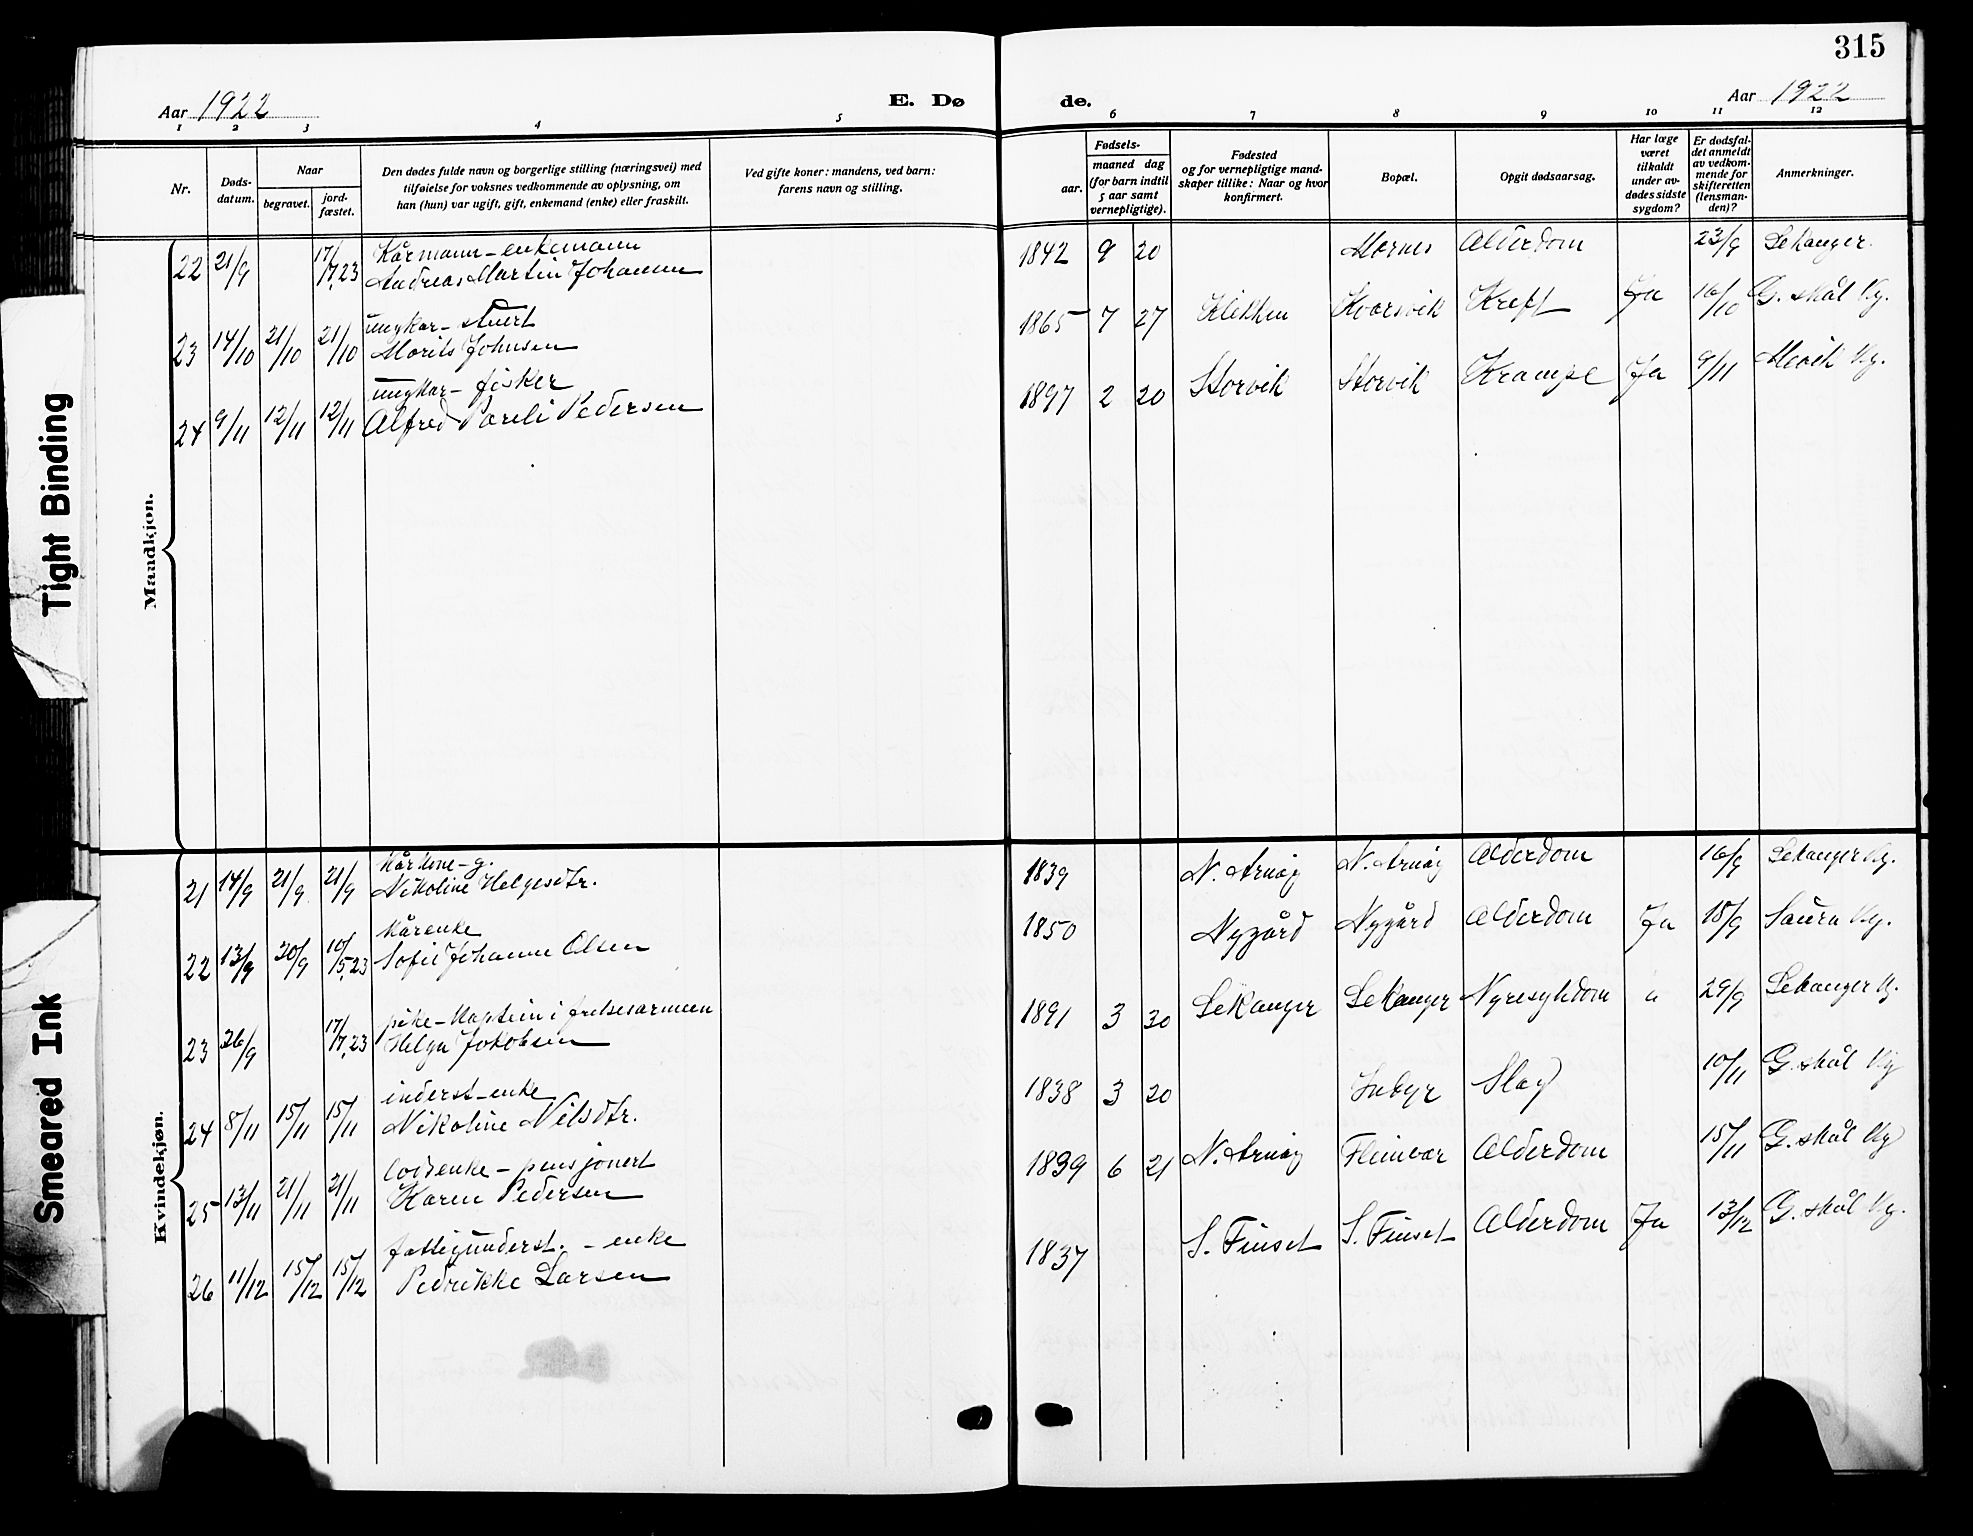 315
Aar 1922 E. Dø de. Aar 1922
1 2 3 4 5 6 7 8 9 10 11 12
Nr.
Døds-
datum.
Naar
begravet.
jord-
fæstet.
Den dødes fulde navn og borgerlige stilling (næringsvei) med
tilføielse for voksnes vedkommende av oplysning, om
han (hun) var ugift, gift, enkemand (enke) eller fraskilt.
Ved gifte koner: mandens, ved barn:
farens navn og stilling.
Fødsels-
aar.
maaned dag
(for barn indtil
5 aar samt
vernepligtige).
Fødested
og for vernepligtige mand-
skaper tillike: Naar og hvor
konfirmert.
Bopæl.
Opgit dødsaarsag.
Har læge
været
tilkaldt
under av-
dødes sidste
sygdom?
Er dødsfal-
det anmeldt
av vedkom-
mende for
skifteretten
(lensman-
den)?
Anmerkninger.
Tight Binding
Mandkjøn.
Kårmann - enkemann
22 21/9 17/7.23 Andreas Martin Johansen 1842 9 20 Mornes Alderdom 23/9 Sekanger.
ungkar - stuert
23 14/10 21/10 21/10 Morits Johnsen 1865 7 27 Klekken Kvarsvik Kreft Ja 16/10 G. skål Kg.
ungkar - fisker
24 9/11 12/11 12/11 Alfred Pareli Pedersen 1897 2 20 Storvik Storvik Krampe Ja 9/11 Kg.
Smeared Ink
Kvindekjøn.
Kårkone - g.
21 14/9 21/9 21/9 Nikoline Helgesdtr. 1839 N. Arnøy N. Arnøy Alderdom 16/9 Sekanger Kg.
Kårenke
22 13/9 20/9 10/5.23 Sofie Johanne Olsen 1850 Nygård Nygård Alderdom Ja 15/9 Saura Kg.
pike - Kaptein i frelsesarmeen
23 26/9 17/7.23 Helga Jakobsen 1891 3 30 Sekanger Sekanger Nyresykdom " 29/9 Sekanger K.
inderst - enke
24 8/11 15/11 15/11 Nikoline Nilsdtr. 1838 3 20 Inbyr Slag 10/11 G. skål Kg
lodsenke - pensjonert
25 13/11 21/11 21/11 Karen Pedersen 1839 6 21 N. Arnøy Fleinvær Alderdom 15/11 G. skål Kg
fattigunderst. - enke
26 11/12 15/12 15/12 Pedrikke Larsen 1837 S. Finset S. Finset Alderdom Ja 13/12 G. skål Kg.